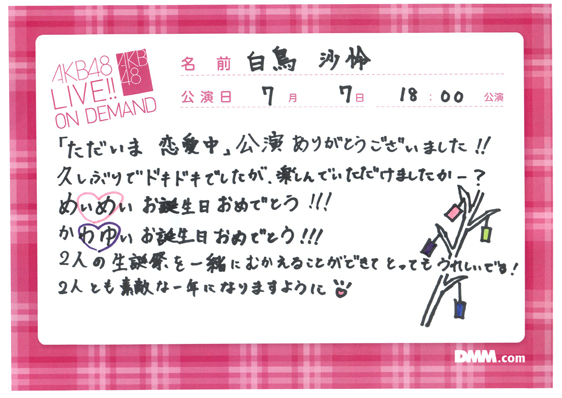 AKB48
LIVE!!
ON DEMAND
AKB
48
名前 白鳥 沙怜
公演日 7月 7日 18:00 公演
「ただいま 恋愛中」公演 ありがとうございました!!
久しぶりでドキドキでしたが、楽しんでいただけましたかー?
めぃめぃ お誕生日 おめでとう!!!
かわゆぃ お誕生日 おめでとう!!!
2人の生誕祭を一緒にむかえることができて とっても うれしいです!
2人とも素敵な一年になりますように
DMM.com